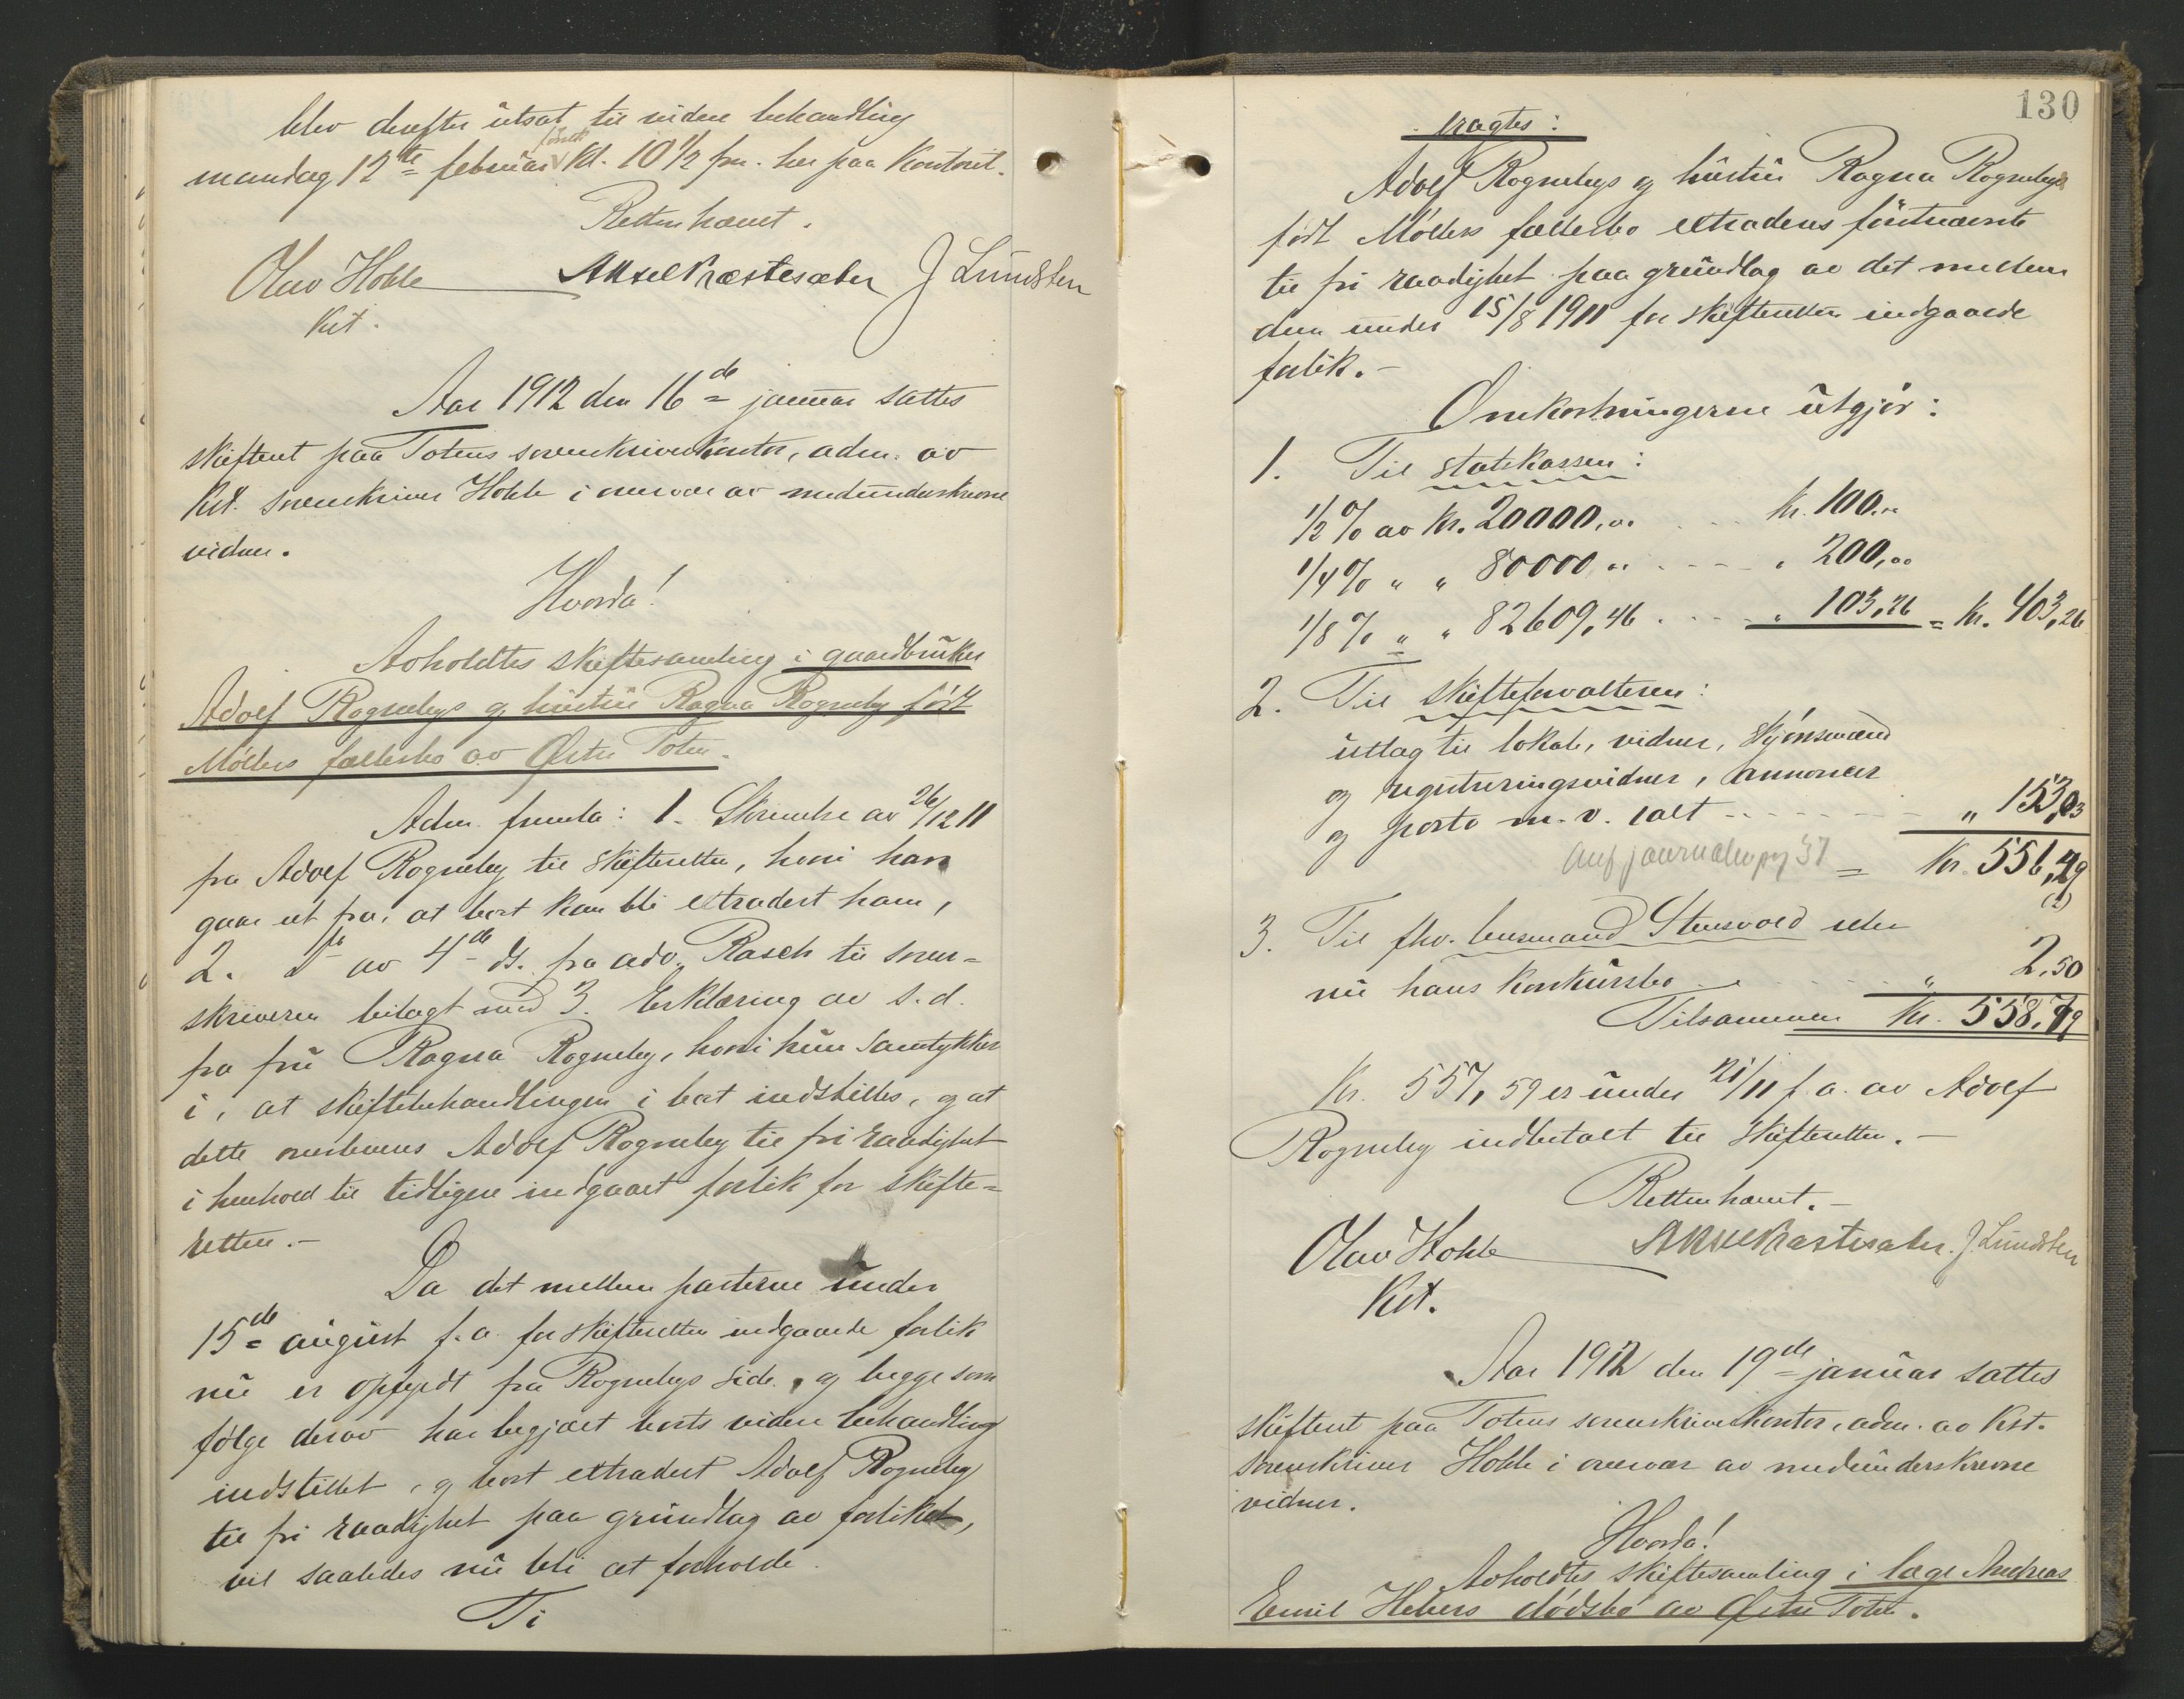 blev derefter utsat til videre behandling
mandag 12te februar förstk. Kl. 10 1/2 fm. her paa Kontoret.
Retten hævet.
Olav Hoble Aksel Kræstesæter J Lundsten
Kst.
Aar 1912 den 16de januar sattes
skifteret paa Totens sorenskriverkontor, adm. av
Kst. sorenskriver Hoble i overvær av medunderskrevne
vidner.
Hvorda!
Avholdtes skiftesamling i gaardbruker
Adolf Rognebys og hustru Ragna Rogneby født
Møllers fællesbo av Østre Toten.
Adm. fremla: 1. Skrivelse av 26/12 11
fra Adolf Rogneby til skifteretten, hvori han
gaar ut fra, at boet kan bli extradert ham,
2. do av 4de ds. fra adv. Rasch til soren-
skriveren bilagt med 3. Erklæring av s.d.
fra fru Ragna Rogneby, hvori hun samtykker
i, at skiftebehandlingen i boet indstilles, og at
dette overleveres Adolf Rogneby til fri raadighet
i henhold til tidligere indgaaet forlik for skifte-
retten.-
Da det mellem parterne under
15de august f.a. for skifteretten indgaaede forlik
nu er opfyldt fra Rognebys side, og begge som
følge derav har begjært boets videre behandling
indstillet, og boet extradert Adolf Rogneby
til fri raadighet paa grundlag av forliket,
vil saaledes nu bli at forholde.
Ti
130
tragtes:
Adolf Rognebys og hustru Ragna Rognebys
født Møllers fællesbo extraderes førstnævnte
til fri raadighet paa grundlag av det mellem
dem under 15/8 1911 for skifteretten indgaaede
forlik.-
Omkostningerne utgjør:
1. Til statskassen:
1/2 % av kr. 20000,00 ... kr. 100,00
1/4 % " " 80000,00 - - - - " 200,00
1/8 % " " 82609,46 . . . . " 103,26 = kr. 403,26
2. Til skifteforvalteren:
utlag til lokale, vidner, skjønsmænd
og registreringsvidner, annoncer
og porto m.v. ialt - - - - - - " 153,03
Anf journalen pg 37 = kr. 556,29
3. Til fhv. lensmand Stensvold eller
nu hans konkursbo . . . . . . " 2,50
Tilsammen kr. 558,79
Kr. 557,59 er under 21/11 f.a. av Adolf
Rogneby indbetalt til skifteretten.-
Retten hævet.-
Olav Hoble Aksel Kræstesæter. J. Lundsten
Kst.
Aar 1912 den 19de januar sattes
skifteret paa Totens sorenskriverkontor, adm. av Kst.
sorenskriver Hoble i overvær av medunderskrevne
vidner.
Hvorda!
Avholdtes skiftesamling i læge Andreas
Emil Hebers dødsbo av Østre Toten.